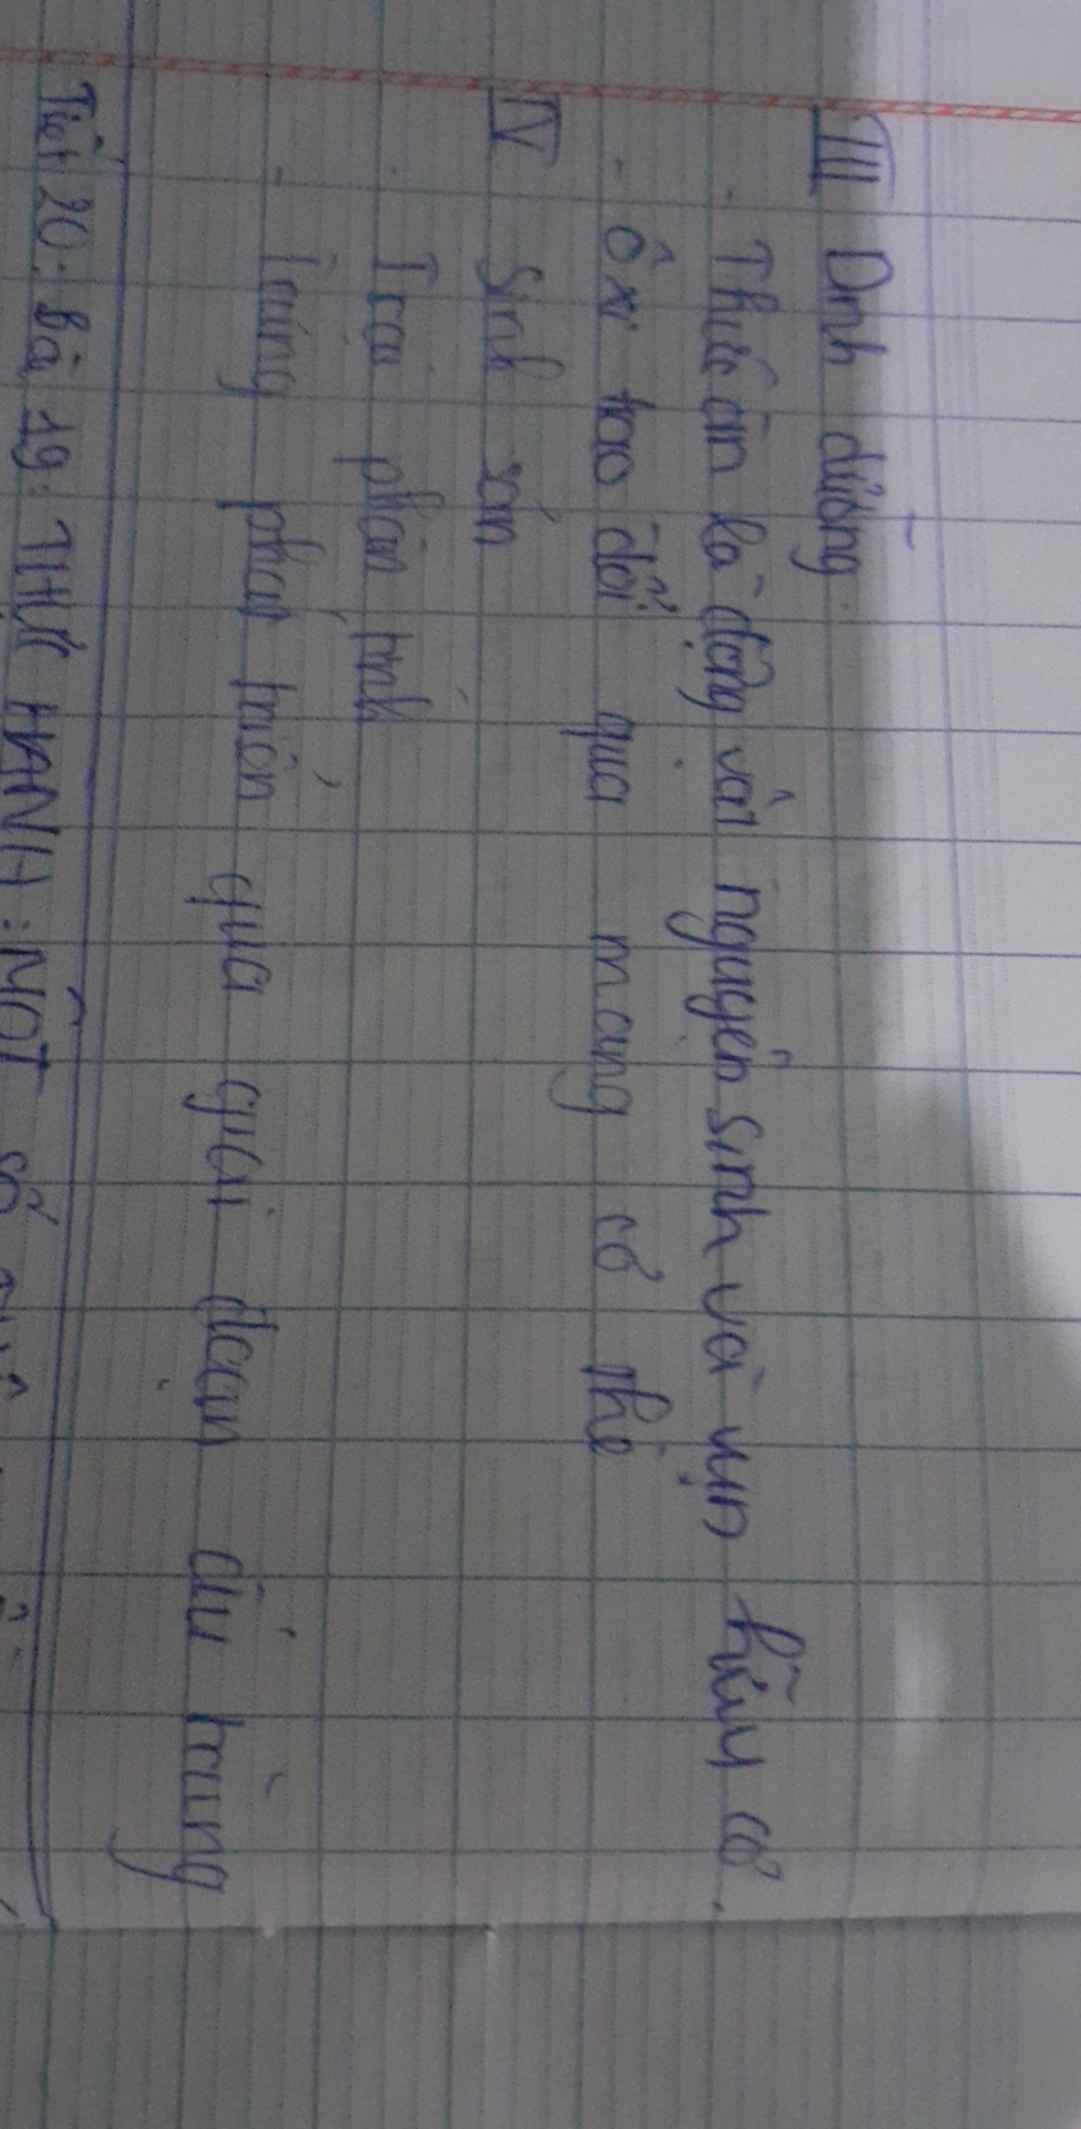 III Dinh dưỡng
- Thức ăn là động vật nguyên sinh và vụn hữu cơ.
- Ôxi trao đổi qua mang cơ thể
IV Sinh sản
- Trai phân tính
- Trứng phát triển qua giai đoạn ấu trùng
Tiết 20: Bài 19: THỰC HÀNH: MỘT SỐ